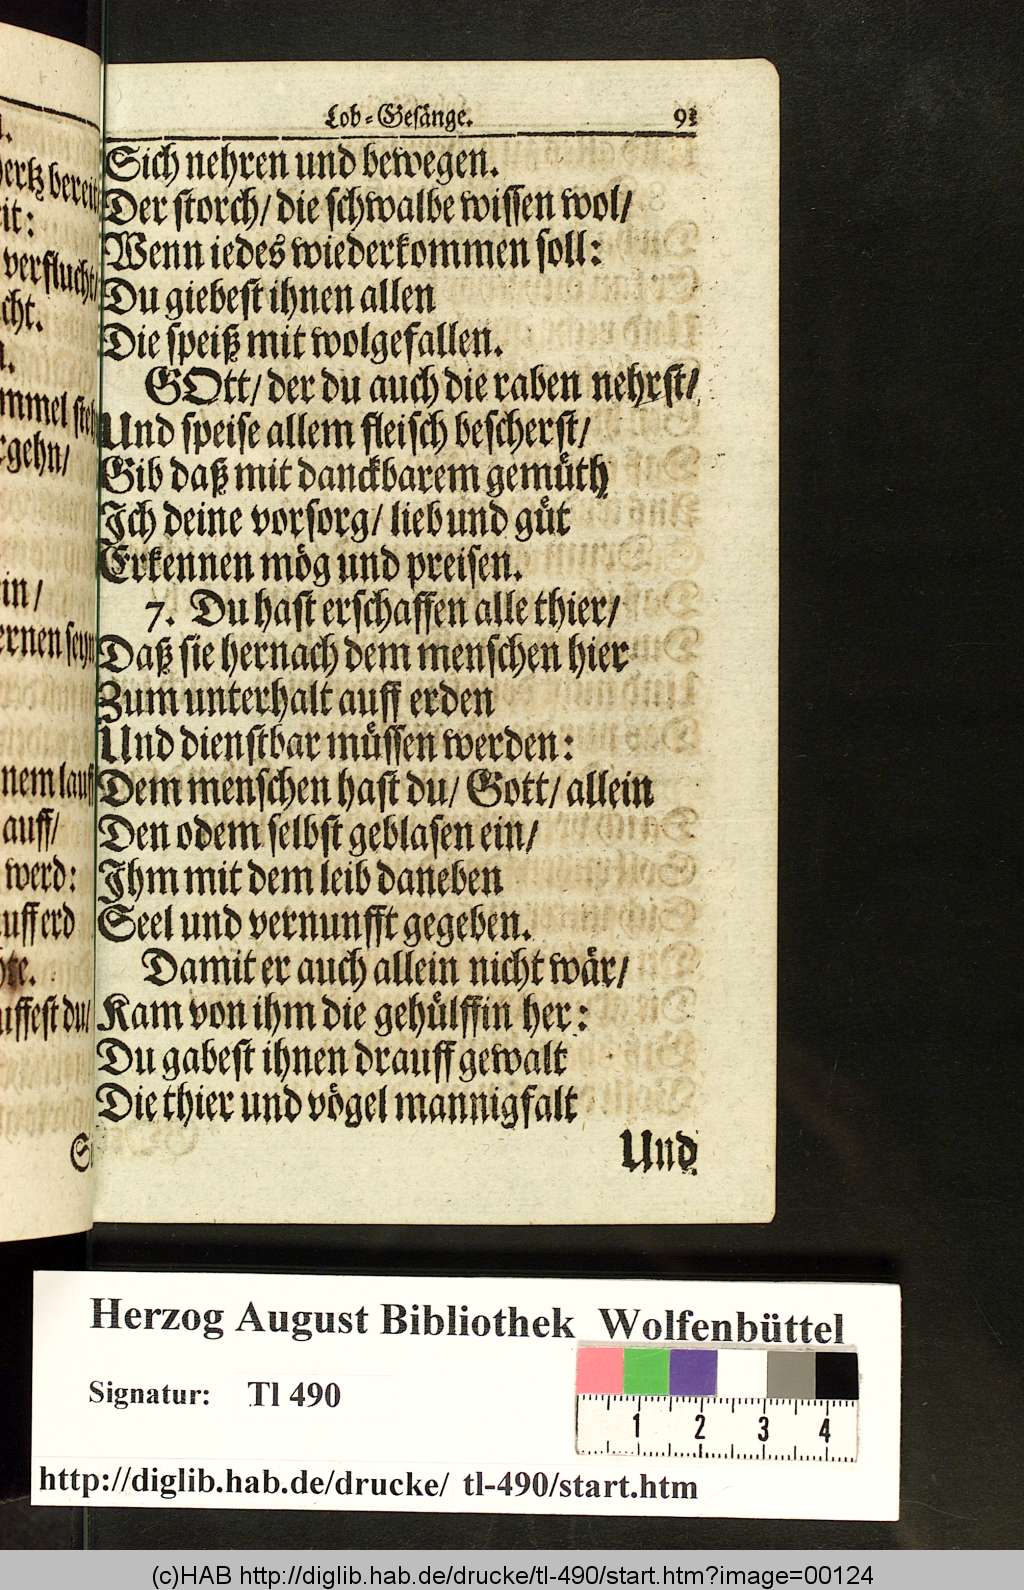 hertz bereit
eit:
verflucht/
cht.
mmel steh
gehn/
in/
ernen seyn
nem lauff
auff/
werd:
auff erd
hte.
uffest du/
Lob-Gesänge. 93
Sich nehren und bewegen.
Der storch/ die schwalbe wissen wol/
Wenn iedes wiederkommen soll:
Du giebest ihnen allen
Die speiß mit wolgefallen.
GOtt/ der du auch die raben nehrst/
Und speise allem fleisch bescherst/
Gib daß mit danckbarem gemüth
Ich deine vorsorg/ lieb und güt
Erkennen mög und preisen.
7. Du hast erschaffen alle thier/
Daß sie hernach dem menschen hier
Zum unterhalt auff erden
Und dienstbar müssen werden:
Dem menschen hast du/ Gott/ allein
Den odem selbst geblasen ein/
Ihm mit dem leib daneben
Seel und vernunfft gegeben.
Damit er auch allein nicht wär/
Kam von ihm die gehülffin her:
Du gabest ihnen drauff gewalt
Die thier und vögel mannigfalt
Und
Herzog August Bibliothek Wolfenbüttel
Signatur: Tl 490
1 2 3 4
http://diglib.hab.de/drucke/ tl-490/start.htm
(c)HAB http://diglib.hab.de/drucke/tl-490/start.htm?image=00124